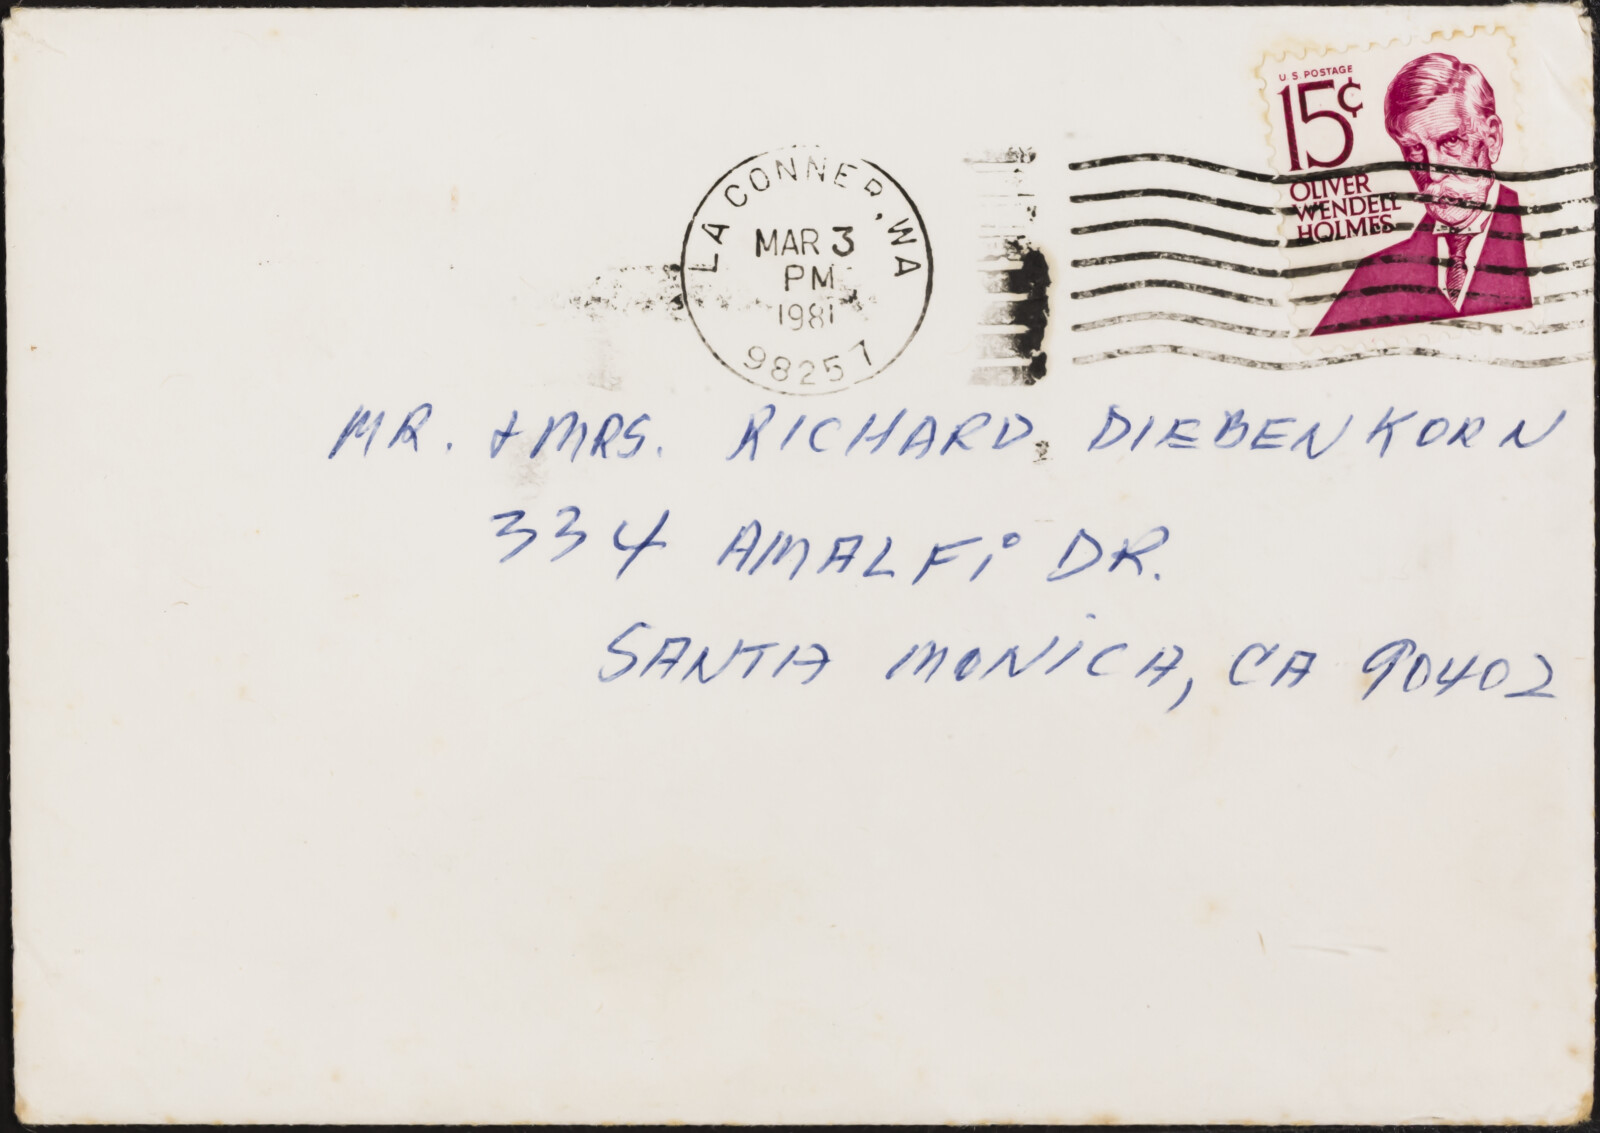 U.S. POSTAGE
15¢
OLIVER
WENDELL
HOLMES
LA CONNER, WA
MAR 3
PM
1981
98257
MR. & MRS. RICHARD DIEBENKORN
334 AMALFi DR.
SANTA MONiCA, CA 90402